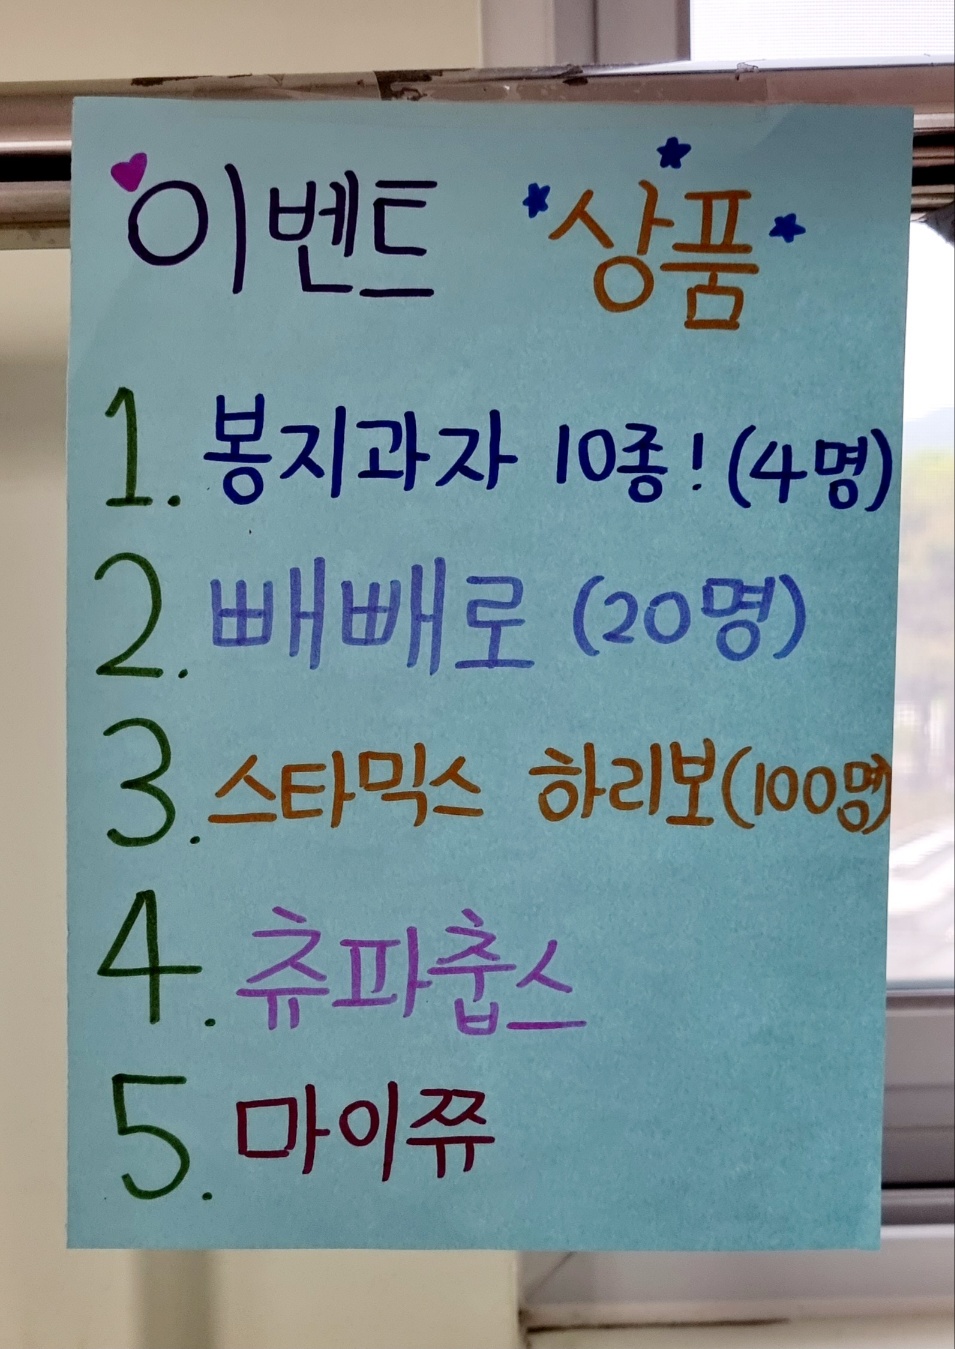 이벤트 상품
1. 봉지과자 10종! (4명)
2. 빼빼로 (20명)
3. 스타믹스 하리보 (100명)
4. 츄파춥스
5. 마이쮸